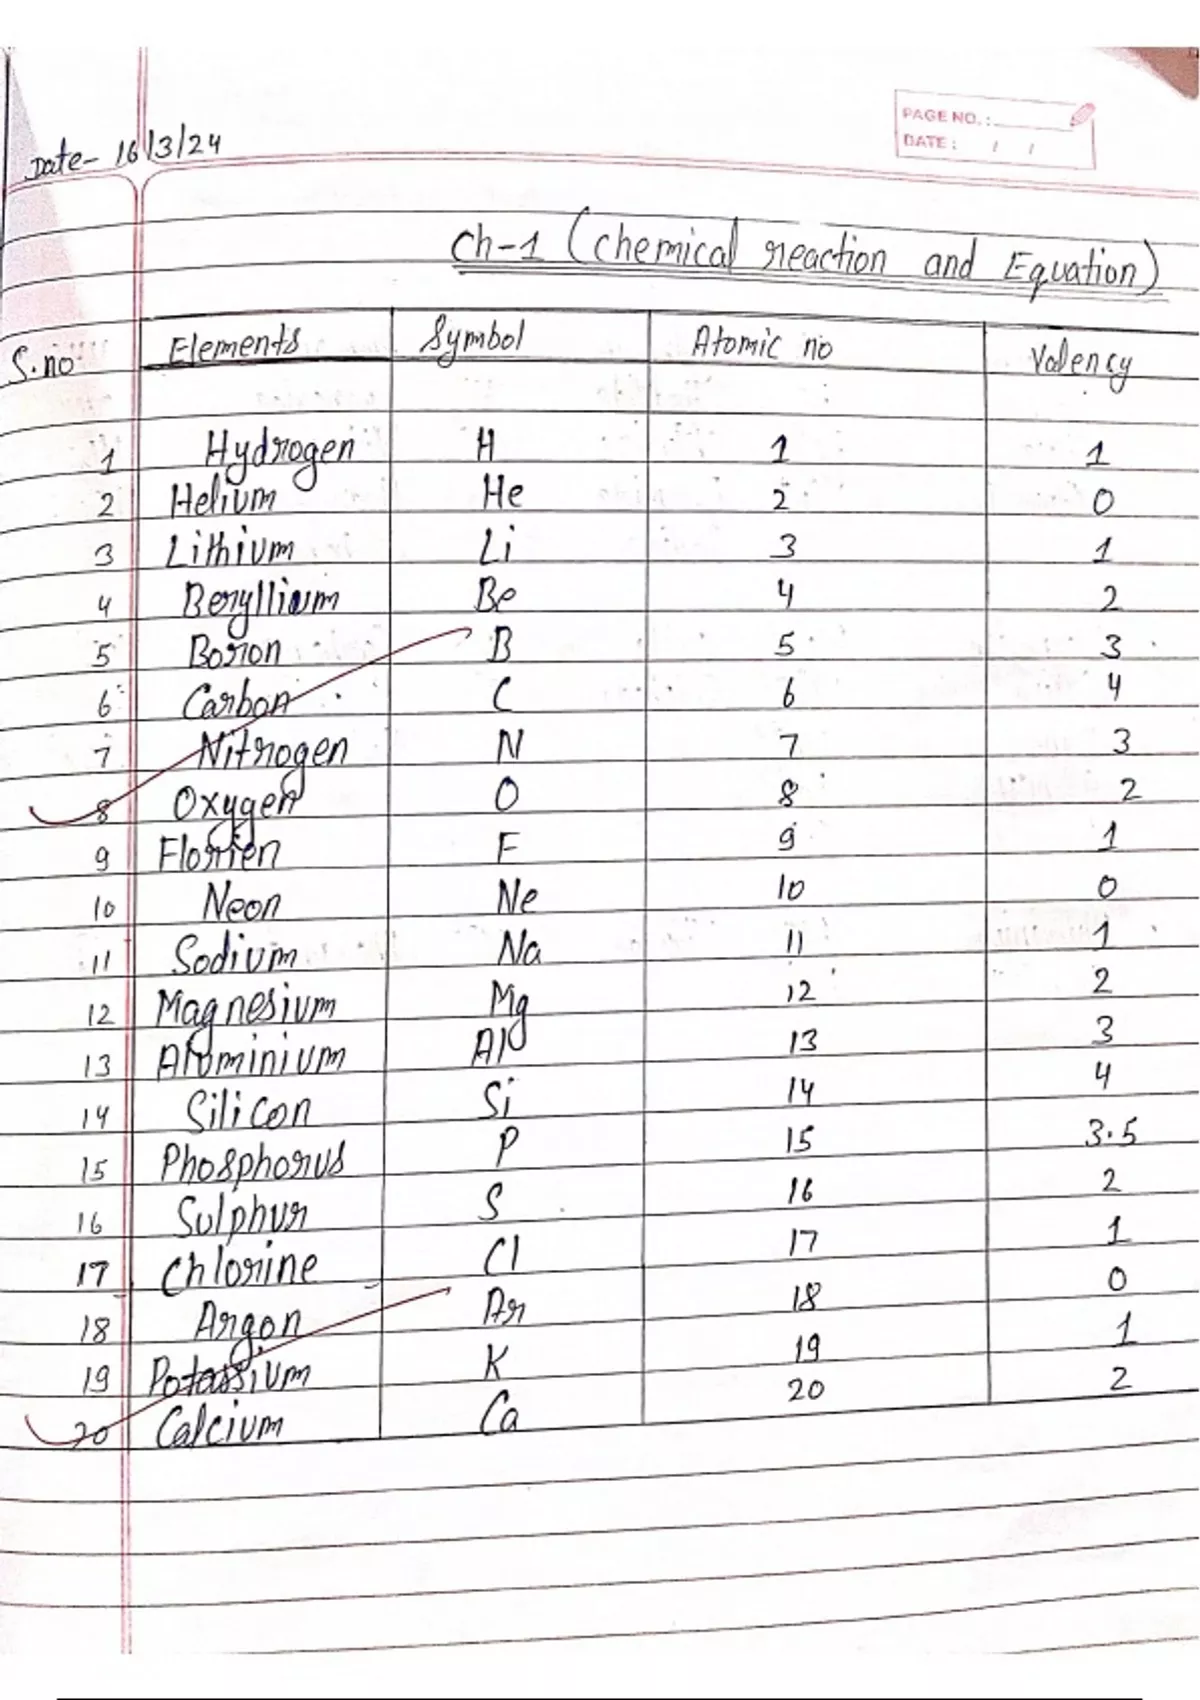 Date- 16/3/24
PAGE NO. :
DATE : / /
Ch-1 (Chemical reaction and Equation)
S.no Elements Symbol Atomic no Valency
1 Hydrogen H 1 1
2 Helium He 2 0
3 Lithium Li 3 1
4 Beryllium Be 4 2
5 Boron B 5 3
6 Carbon C 6 4
7 Nitrogen N 7 3
8 Oxygen O 8 2
9 Florien F 9 1
10 Neon Ne 10 0
11 Sodium Na 11 1
12 Magnesium Mg 12 2
13 Aluminium Al 13 3
14 Silicon Si 14 4
15 Phosphorus P 15 3.5
16 Sulphur S 16 2
17 Chlorine Cl 17 1
18 Argon Ar 18 0
19 Potassium K 19 1
20 Calcium Ca 20 2